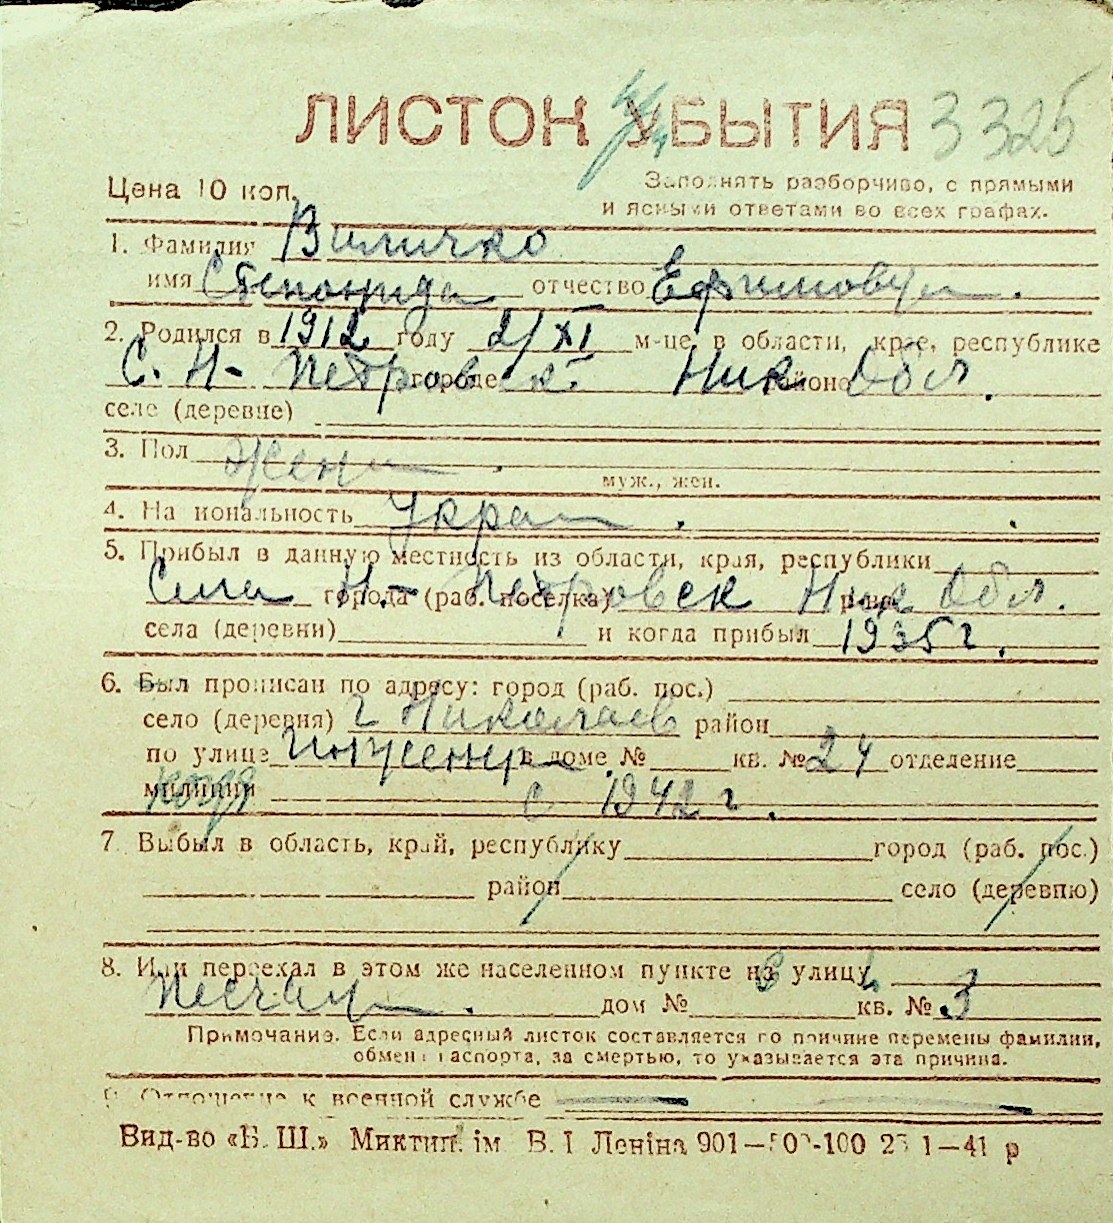 ЛИСТОК УБЫТИЯ 3325
Цена 10 коп. Заполнять разборчиво, с прямыми
и ясными ответами во всех графах.
1. Фамилия Виличко
имя Степонида отчество Ефимовна.
2. Родился в 1912 году 2/XI м-це, в области, крае, республике
С. Н-Петровск. городе Ник районе Обл.
селе (деревне)
3. Пол Жен.
муж., жен.
4. На иональность Украи.
5. Прибыл в данную местность из области, края, республики
Села Н-Петровск города (раб. поселка) Ник Обл.
села (деревни) и когда прибыл 1935 г.
6. Был прописан по адресу: город (раб. пос.)
село (деревня) г Николаев район
по улице Инженер в доме № кв. № 24 отделение
милиции когда с 1942 г.
7. Выбыл в область, край, республику город (раб. пос.)
район село (деревню)
8. Или переехал в этом же населенном пункте на улицу
Песчан. дом № кв. № 3
Примечание. Если адресный листок составляется по причине перемены фамилии,
обмена паспорта, за смертью, то указывается эта причина.
9. Отношение к военной службе
Вид-во «Б. Ш.» Миктип. ім В. І Леніна 901—500-100 23 1—41 р